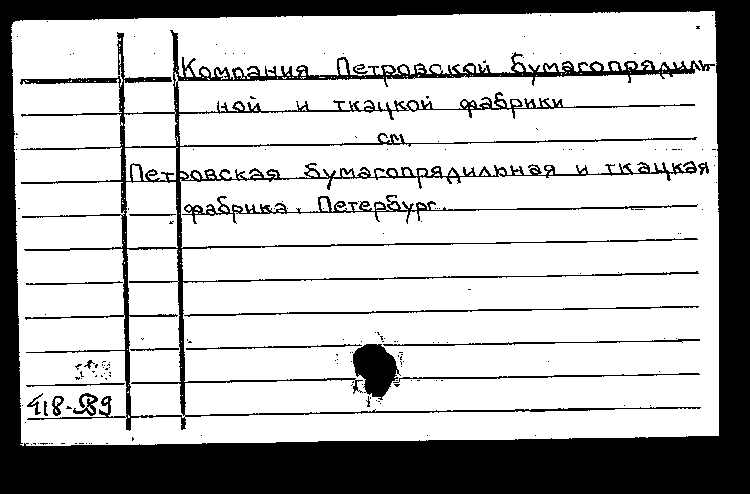 Компания Петровской бумагопрядиль-
ной и ткацкой фабрики
см.
Петровская бумагопрядильная и ткацкая
фабрика. Петербург.
418-589